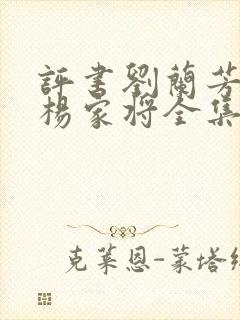 評書劉蘭芳
楊家将全集
克莱恩-蒙塔